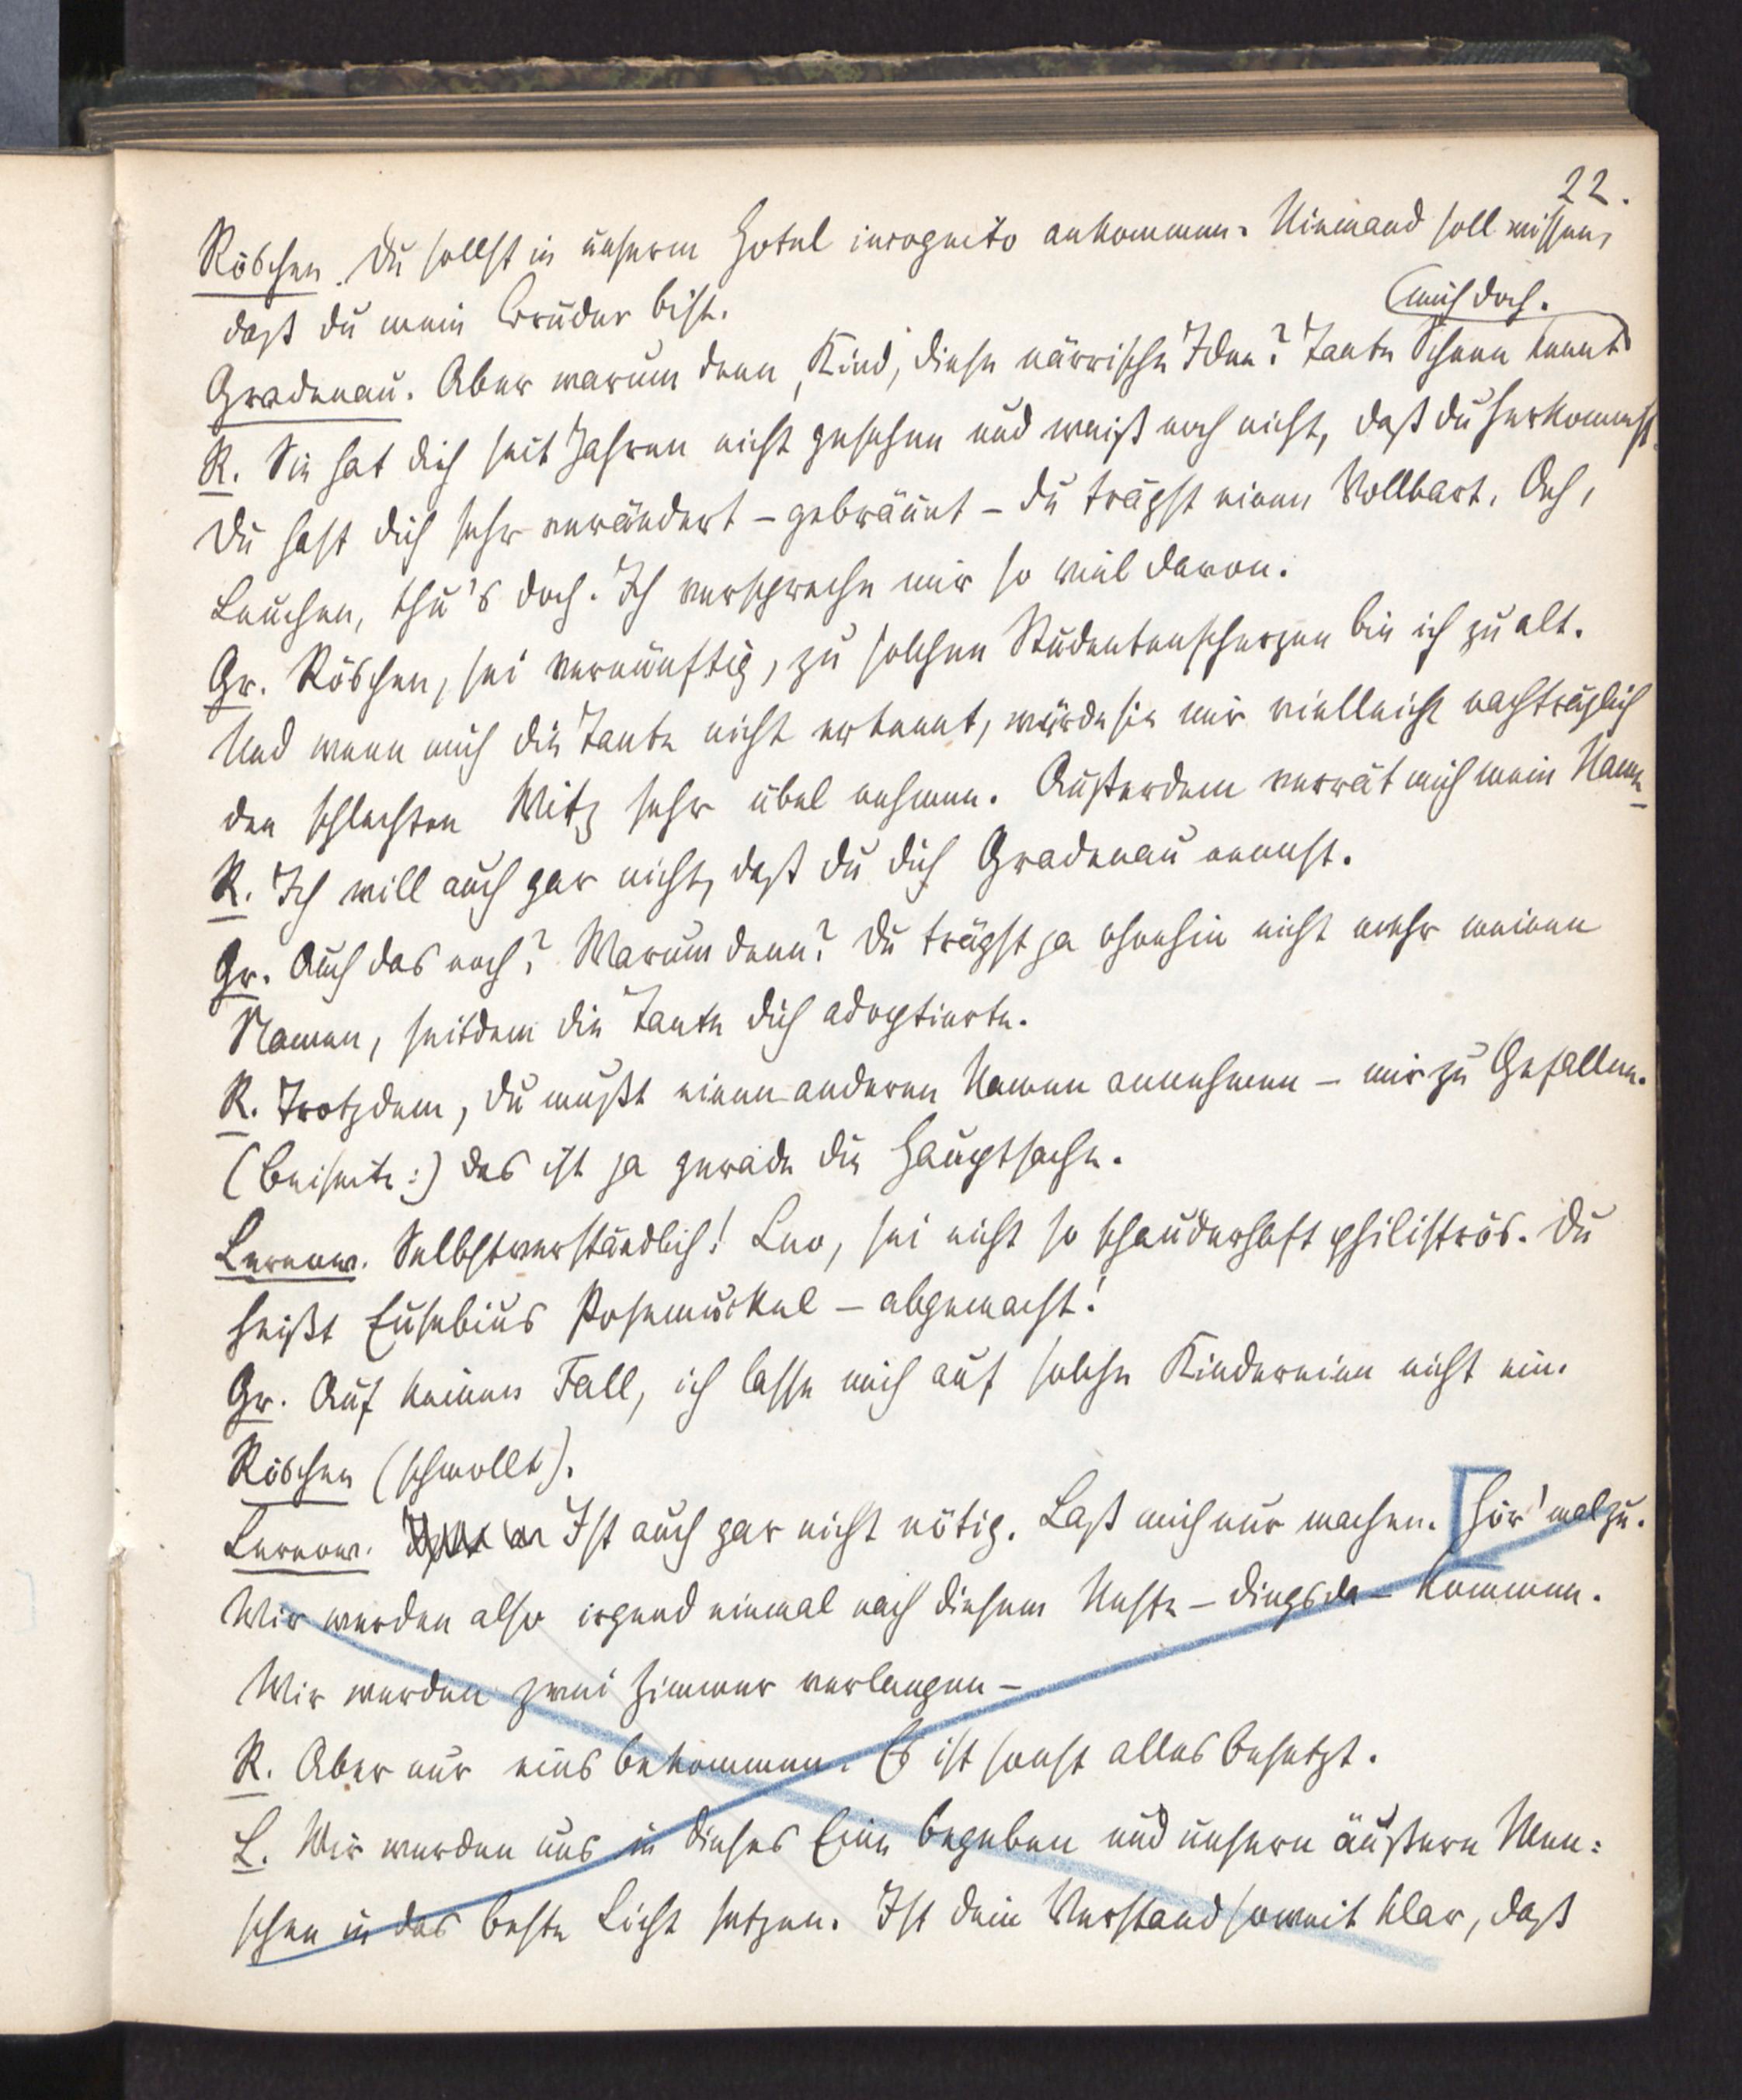 22.
Röschen. Du sollst in unserm Hotel incognito ankommen. Niemand soll wissen,
daß du mein Bruder bist.
Gradenau. Aber warum denn, Kind, diese närrische Idee? Tante Scheen kennt
mich doch.
R. Sie hat dich seit Jahren nicht gesehen und weiß noch nicht, daß du herkommst.
Du hast dich sehr verändert – gebräunt – du trägst einen Vollbart. Ach,
Leuchen, thu's doch. Ich verspreche mir so viel davon.
Gr. Röschen, sei vernünftig, zu solchen Studentenscherzen bin ich zu alt.
Und wenn mich die Tante nicht erkennt, würde sie mir vielleicht nachträglich
den schlechten Witz sehr übel nehmen. Außerdem verrät mich mein Name
R. Ich will auch gar nicht, daß du dich Gradenau nennst.
Gr. Auch das noch? Warum denn? Du trägst ja ohnehin nicht mehr meinen
Namen, seitdem die Tante dich adoptierte.
R. Trotzdem, du mußt einen anderen Namen annehmen – mir zu Gefallen.
(Beiseite:) das ist ja gerade die Hauptsache.
Lernow. Selbstverständlich! Leo, sei nicht so schauderhaft philiströs. Du
heißt Eusebius Posemuckel – abgemacht!
Gr. Auf keinen Fall, ich lasse mich auf solche Kindereien nicht ein.
Röschen (schmollt).
Lernow. Ist auch gar nicht nötig. Laß mich nur machen. Hör' mal zu.
Wir werden also irgend einmal nach diesem Neste – dingsda – kommen.
Wir werden zwei Zimmer verlangen –
R. Aber nur eins bekommen. Es ist sonst alles besetzt.
L. Wir werden uns in dieses Eine begeben und unsern äußern Men:
schen in das beste Licht setzen. Ist dein Verstand soweit klar, daß